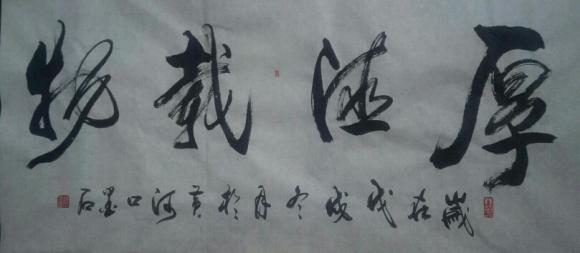 厚德載物
歲在戊戌冬月於黄河口墨石